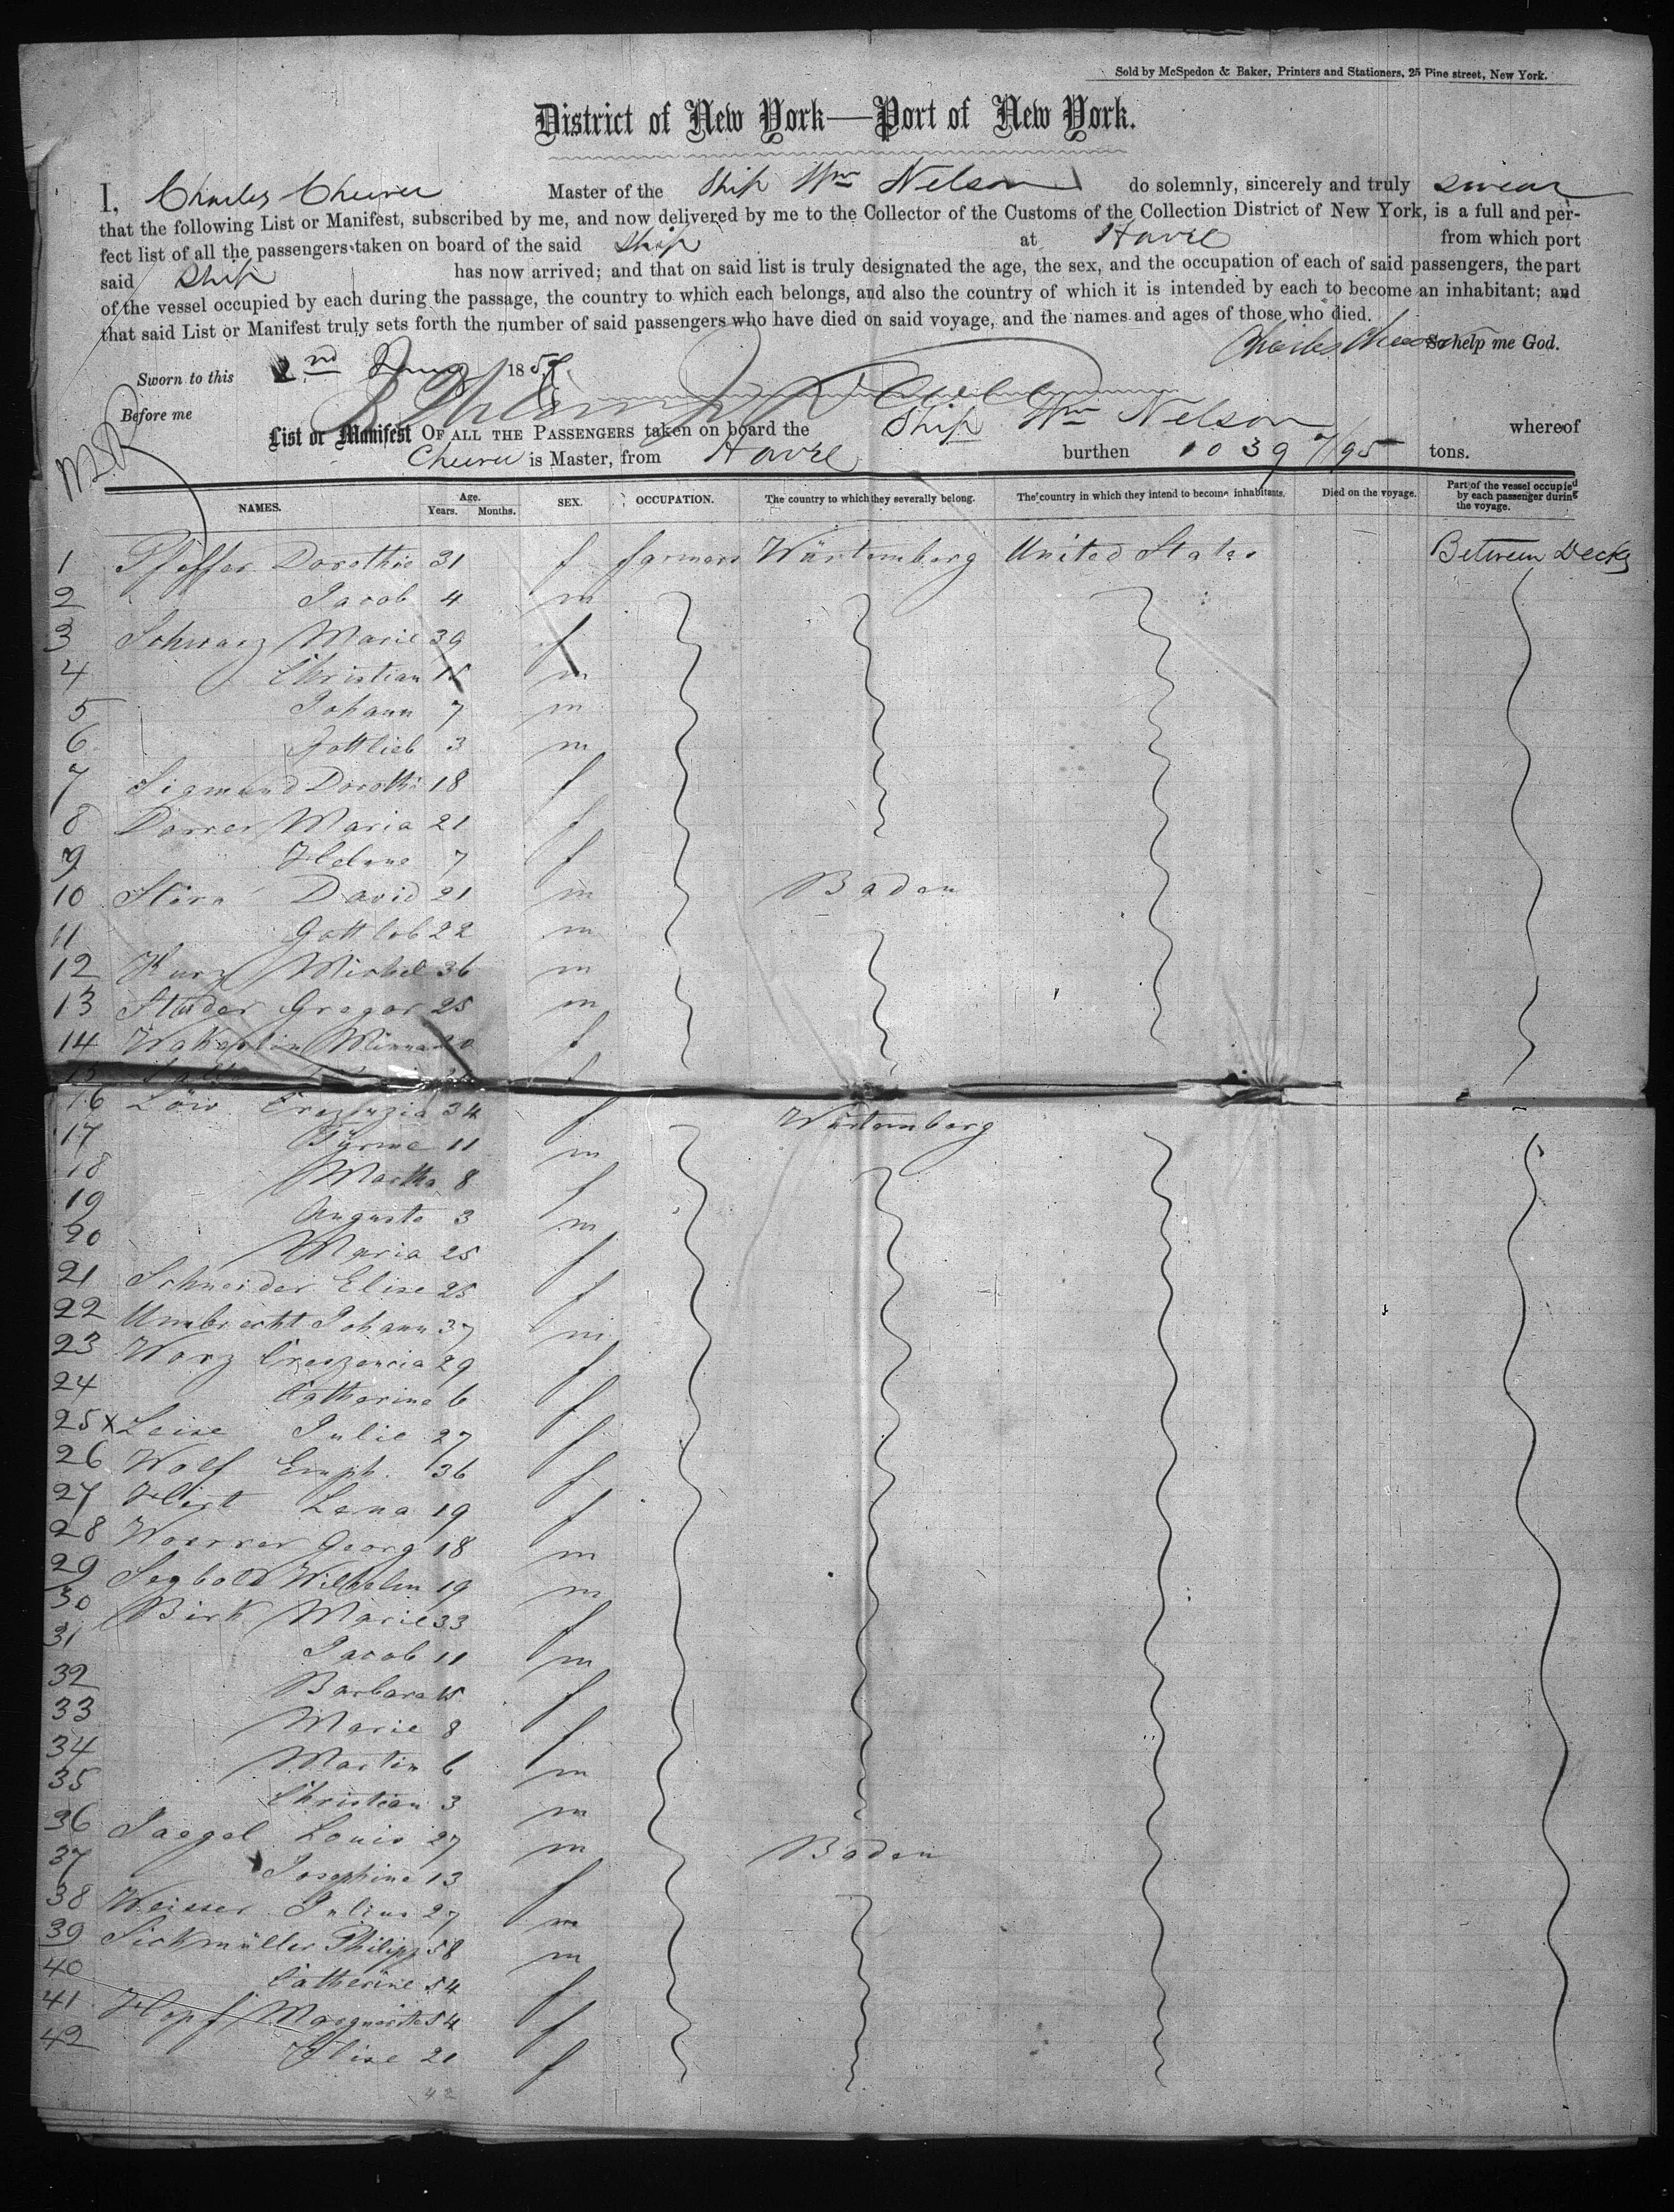 Sold by McSpedon & Baker, Printers and Stationers, 25 Pine street, New York.
District of New York—Port of New York.
I, Charles Cheever Master of the Ship Wm Nelson do solemnly, sincerely and truly swear
that the following List or Manifest, subscribed by me, and now delivered by me to the Collector of the Customs of the Collection District of New York, is a full and per-
fect list of all the passengers taken on board of the said Ship at Havre from which port
said Ship has now arrived; and that on said list is truly designated the age, the sex, and the occupation of each of said passengers, the part
of the vessel occupied by each during the passage, the country to which each belongs, and also the country of which it is intended by each to become an inhabitant; and
that said List or Manifest truly sets forth the number of said passengers who have died on said voyage, and the names and ages of those who died.
Charles Cheever So help me God.
Sworn to this 2nd Aug 185
Before me
List or Manifest OF ALL THE PASSENGERS taken on board the Ship Wm Nelson whereof
Cheever is Master, from Havre burthen 1039 7/95 tons.
NAMES. Age. Years. Months. SEX. OCCUPATION. The country to which they severally belong. The country in which they intend to become inhabitants. Died on the voyage. Part of the vessel occupied by each passenger during the voyage.
1 Pfeffer Dorothie 31 f farmers Würtemberg United States Between Decks
2 Jacob 4 m
3 Schwarz Marie 39 f
4 Christian 15 m
5 Johann 7 m
6 Gottlieb 3 m
7 Sigmund Doroth 18 f
8 Dorrer Maria 21 f
9 Helene 7 f
10 David 21 m Baden
11 Gottlob 22 m
12 Kurz Michel 36 m
13 Studer Gregor 25 m
14 Minna 20 f
15 f
16 Löw Crezenzia 34 f Würtemberg
17 11 m
18 Martha 8 f
19 Auguste 3 m
20 Maria 25 f
21 Schneider Elise 25 f
22 Umbrecht Johann 37 m
23 Worz Creszencia 29 f
24 Catherine 6 f
25 x Leise Julie 27 f
26 Wolf Euph. 36 f
27 Lena 19 f
28 Woerner Georg 18 m
29 Seybold Wilhelm 19 m
30 Birk Marie 33 f
31 Jacob 11 m
32 Barbara 15 f
33 Marie 8 f
34 Martin 6 m
35 Christian 3 m
36 Jaegel Louis 27 m Baden
37 Josephine 13 f
38 Weisser Julius 27 m
39 Sickmüller Philipp 58 m
40 Catherine 54 f
41 Hopf Marguerite 54 f
42 Elise 21 f
42